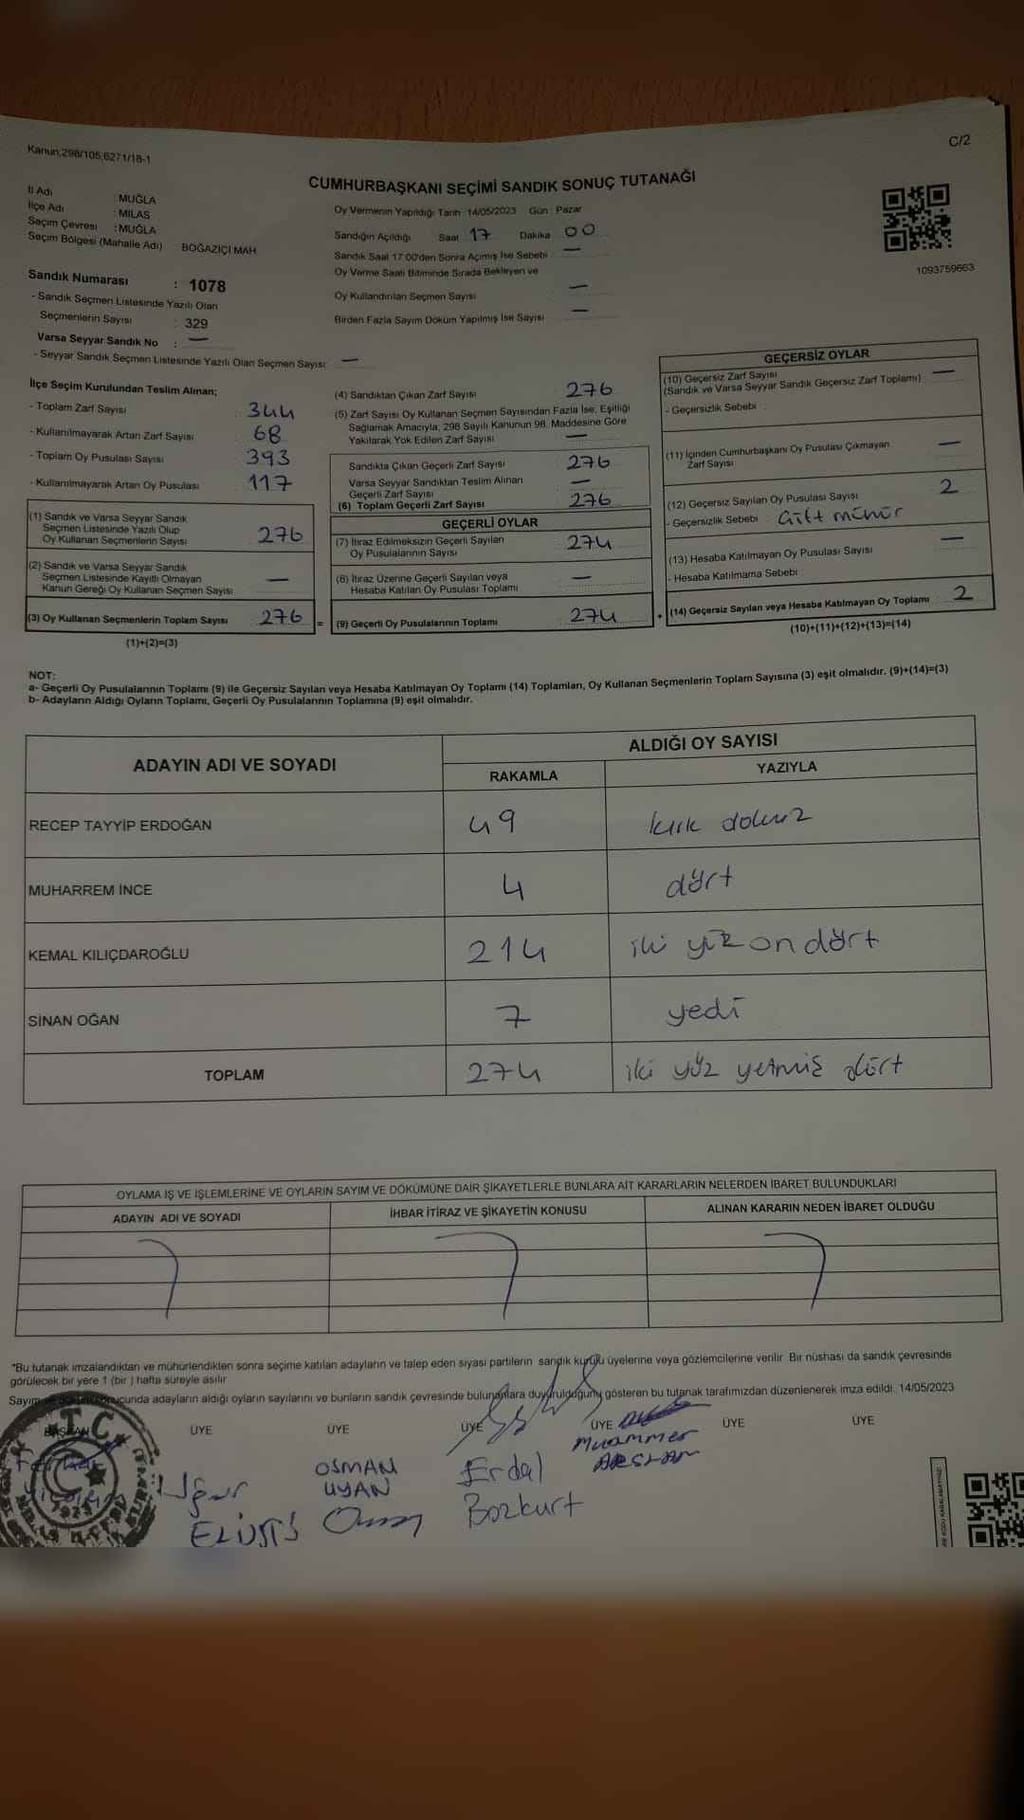 Kanun;298/105;6271/18-1
C/2
CUMHURBAŞKANI SEÇİMİ SANDIK SONUÇ TUTANAĞI
İl Adı : MUĞLA
İlçe Adı : MİLAS
Seçim Çevresi : MUĞLA
Seçim Bölgesi (Mahalle Adı) BOĞAZİÇİ MAH
Sandık Numarası : 1078
- Sandık Seçmen Listesinde Yazılı Olan
Seçmenlerin Sayısı : 329
Varsa Seyyar Sandık No : —
- Seyyar Sandık Seçmen Listesinde Yazılı Olan Seçmen Sayısı: —
Oy Vermenin Yapıldığı Tarih : 14/05/2023 Gün : Pazar
Sandığın Açıldığı Saat 17 Dakika 00
Sandık Saat 17:00'den Sonra Açımış İse Sebebi : —
Oy Verme Saati Bitiminde Sırada Bekliyen ve
Oy Kullandırılan Seçmen Sayısı —
Birden Fazla Sayım Döküm Yapılmış İse Sayısı —
1093759663
İlçe Seçim Kurulundan Teslim Alınan;
- Toplam Zarf Sayısı 344
- Kullanılmayarak Artan Zarf Sayısı 68
- Toplam Oy Pusulası Sayısı 393
- Kullanılmayarak Artan Oy Pusulası 117
(1) Sandık ve Varsa Seyyar Sandık
Seçmen Listesinde Yazılı Olup
Oy Kullanan Seçmenlerin Sayısı 276
(2) Sandık ve Varsa Seyyar Sandık
Seçmen Listesinde Kayıtlı Olmayan
Kanun Gereği Oy Kullanan Seçmen Sayısı —
(3) Oy Kullanan Seçmenlerin Toplam Sayısı 276 =
(1)+(2)=(3)
(4) Sandıktan Çıkan Zarf Sayısı 276
(5) Zarf Sayısı Oy Kullanan Seçmen Sayısından Fazla İse, Eşitliği
Sağlamak Amacıyla, 298 Sayılı Kanunun 98. Maddesine Göre
Yakılarak Yok Edilen Zarf Sayısı —
Sandıkta Çıkan Geçerli Zarf Sayısı 276
Varsa Seyyar Sandıktan Teslim Alınan
Geçerli Zarf Sayısı —
(6) Toplam Geçerli Zarf Sayısı 276
GEÇERLİ OYLAR
(7) İtiraz Edilmeksizin Geçerli Sayılan
Oy Pusulalarının Sayısı 274
(8) İtiraz Üzerine Geçerli Sayılan veya
Hesaba Katılan Oy Pusulası Toplamı —
(9) Geçerli Oy Pusulalarının Toplamı 274 +
GEÇERSİZ OYLAR
(10) Geçersiz Zarf Sayısı —
(Sandık ve Varsa Seyyar Sandık Geçersiz Zarf Toplamı)
- Geçersizlik Sebebi :
(11) İçinden Cumhurbaşkanı Oy Pusulası Çıkmayan —
Zarf Sayısı
(12) Geçersiz Sayılan Oy Pusulası Sayısı 2
- Geçersizlik Sebebi Çift mühür
(13) Hesaba Katılmayan Oy Pusulası Sayısı —
- Hesaba Katılmama Sebebi :
(14) Geçersiz Sayılan veya Hesaba Katılmayan Oy Toplamı 2
(10)+(11)+(12)+(13)=(14)
NOT:
a- Geçerli Oy Pusulalarının Toplamı (9) ile Geçersiz Sayılan veya Hesaba Katılmayan Oy Toplamı (14) Toplamları, Oy Kullanan Seçmenlerin Toplam Sayısına (3) eşit olmalıdır. (9)+(14)=(3)
b- Adayların Aldığı Oyların Toplamı, Geçerli Oy Pusulalarının Toplamına (9) eşit olmalıdır.
ADAYIN ADI VE SOYADI ALDIĞI OY SAYISI
RAKAMLA YAZIYLA
RECEP TAYYİP ERDOĞAN 49 kırk dokuz
MUHARREM İNCE 4 dört
KEMAL KILIÇDAROĞLU 214 iki yüz on dört
SİNAN OĞAN 7 yedi
TOPLAM 274 iki yüz yetmiş dört
OYLAMA İŞ VE İŞLEMLERİNE VE OYLARIN SAYIM VE DÖKÜMÜNE DAİR ŞİKAYETLERLE BUNLARA AİT KARARLARIN NELERDEN İBARET BULUNDUKLARI
ADAYIN ADI VE SOYADI İHBAR İTİRAZ VE ŞİKAYETİN KONUSU ALINAN KARARIN NEDEN İBARET OLDUĞU
"Bu tutanak imzalandıktan ve mühürlendikten sonra seçime katılan adayların ve talep eden siyasi partilerin sandık kurulu üyelerine veya gözlemcilerine verilir. Bir nüshası da sandık çevresinde
görülecek bir yere 1 (bir ) hafta süreyle asılır
Sayım sonucunda adayların aldığı oyların sayılarını ve bunların sandık çevresinde bulunanlara duyurulduğunu gösteren bu tutanak tarafımızdan düzenlenerek imza edildi. 14/05/2023
BAŞKAN ÜYE ÜYE ÜYE ÜYE ÜYE ÜYE
T.C.
Uğur
OSMAN
UYAN
Erdal
Bozkurt
Muammer
ARSLAN